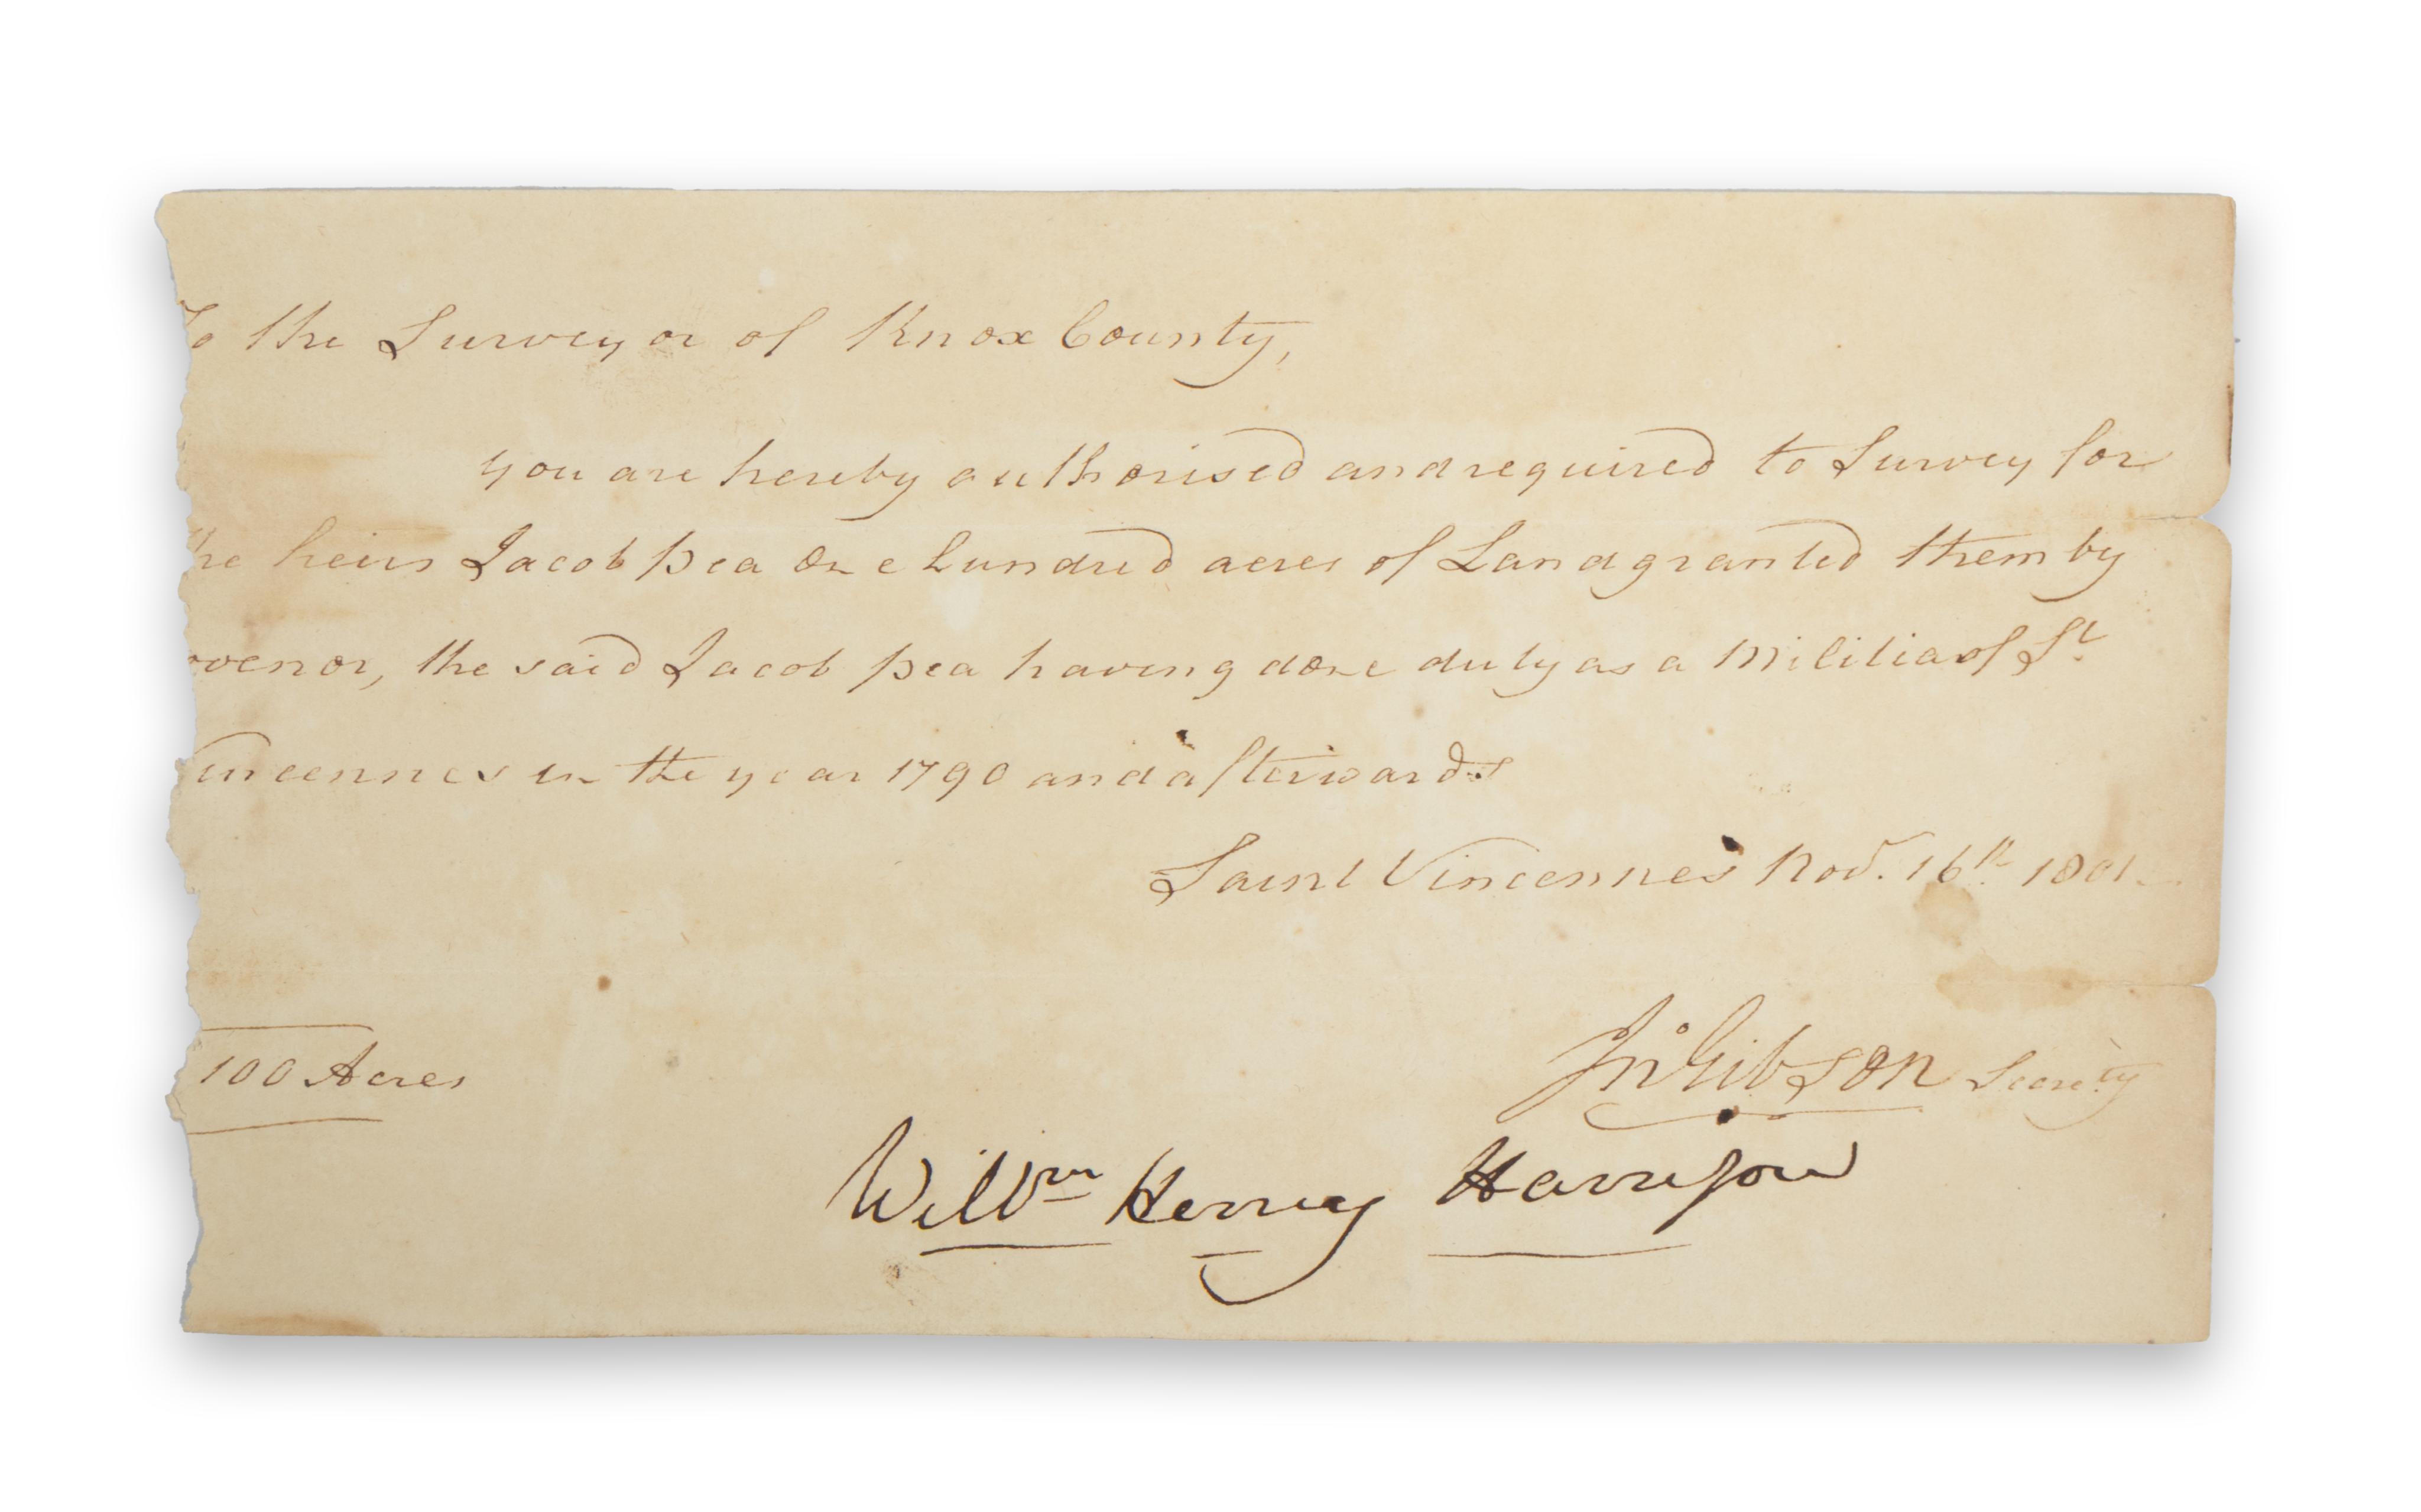 To the Surveyor of Knox County,
you are hereby authorised and required to Survey for
he heirs Jacob pea One hundred acres of Land granted them by
overnor, the said Jacob pea having done duty as a Militia of St
Vincennes in the year 1790 and afterwards
Saint Vincennes Nov. 16th 1801
100 Acres
Jno Gibson Secrety
Willm Henry Harrison